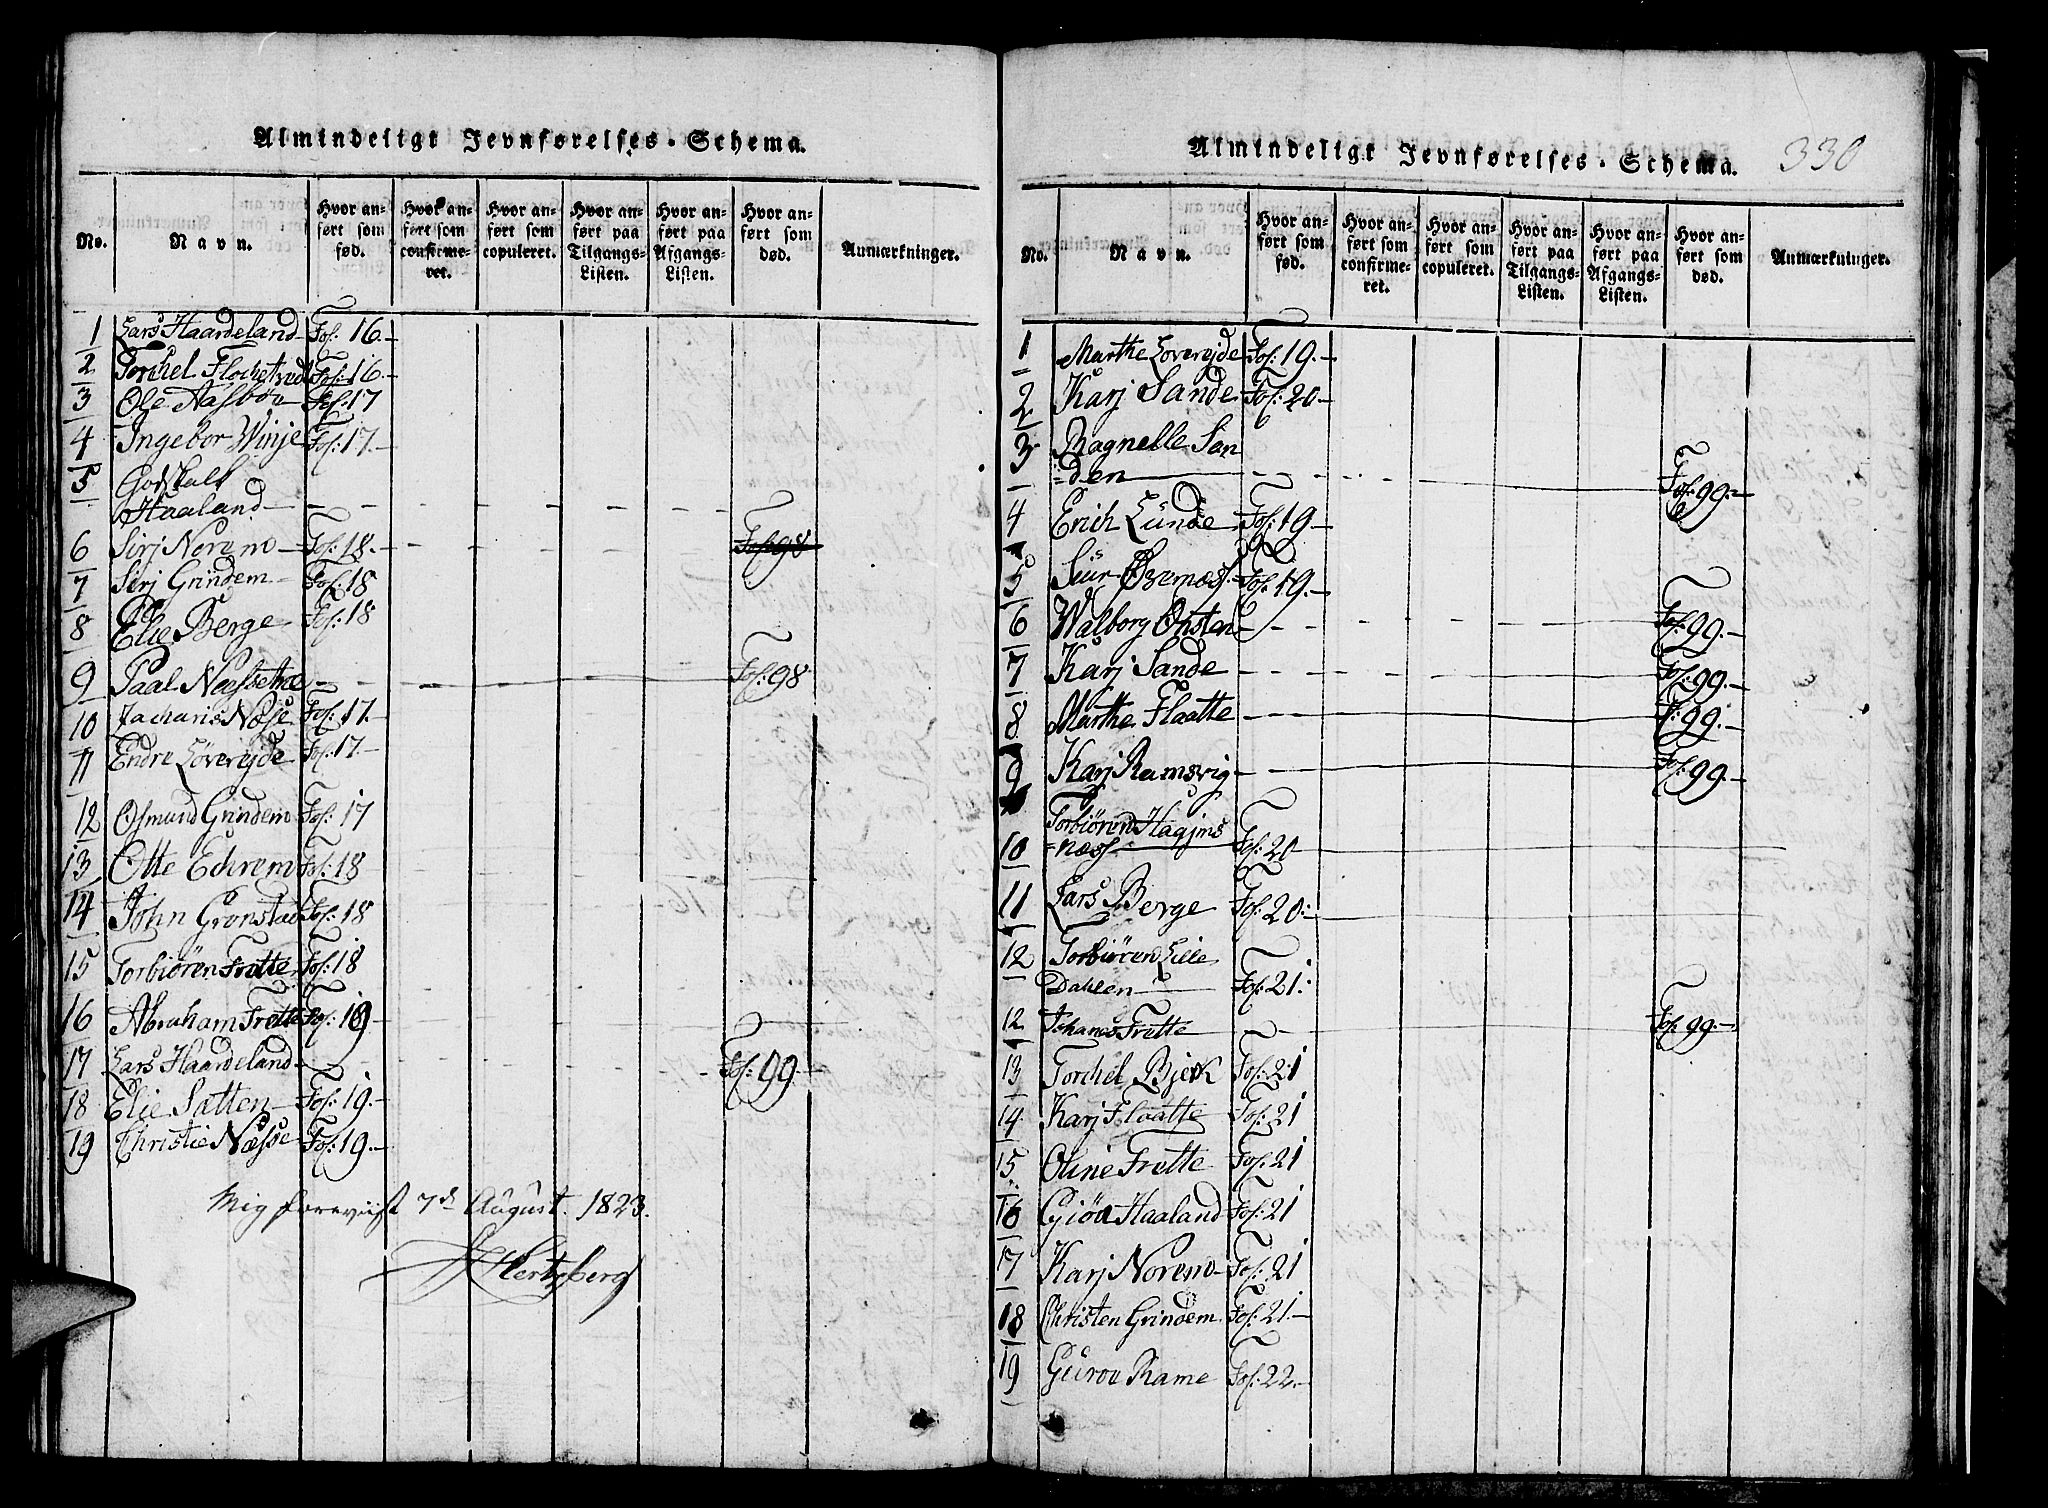 Almindeligt Jevnførelses-Schema.
No. Navn. Hvor anført som fød. Hvor anført som confirmeret. Hvor anført som copuleret. Hvor anført paa Tilgangs-Listen. Hvor anført paa Afgangs-Listen. Hvor anført som død. Anmærkninger.
1 Lars Haardeland Fol. 16.
2 Torchel Flochetved Fol. 16.
3 Ole Aasbøe Fol. 17
4 Ingebor Winje Fol. 17.
5 Godskalk
Haaland
6 Siri Norem Fol. 18. Fol. 98
7 Sirj Grindem Fol. 18
8 Elie Berge Fol. 18
9 Paal Noessetræ Fol. 98
10 Zacharis Næsse Fol. 17.
11 Endre Løverejde Fol. 17.
12 Osmund Grindem Fol. 17
13 Otte Echrem Fol. 18
14 John Gronstad Fol. 18
15 Torbiøren Frette Fol. 18
16 Abraham Frette Fol. 19
17 Lars Haardeland Fol. 99.
18 Elie Sætten Fol. 19.
19 Christie Næsse Fol. 19.
Mig foreviist 7d August. 1823.
Hertzberg
Almindeligt Jevnførelses-Schema. 330
No. Navn. Hvor anført som fød. Hvor anført som confirmeret. Hvor anført som copuleret. Hvor anført paa Tilgangs-Listen. Hvor anført paa Afgangs-Listen. Hvor anført som død. Anmærkninger.
1 Marthe Loverejde Fol. 19.
2 Karj Sande Fol. 20.
3 Ragnelle San
=den Fol. 99.
4 Erich Lunde Fol. 19.
5 Siur Øvernæs Fol. 19.
6 Walborg Østen Fol. 99.
7 Karj Sande Fol. 99.
8 Marthe Flaatte F. 99.
9 Karj Ramsvig Fol. 99.
10 Torbiøren Hagjms
=næss Fol. 20
11 Lars Berge Fol. 20.
12 Torbiøren Lille
Dahlen Fol. 21.
12 Johanes Frette Fol. 99.
13 Torchel Bjerk Fol. 21
14 Karj Flaatte Fol. 21
15 Oline Frette Fol. 21
16 Giøa Haaland Fol. 21
17 Karj Norem Fol. 21
18 Christen Grindem Fol. 21.
19 Guroe Rame Fol. 22.